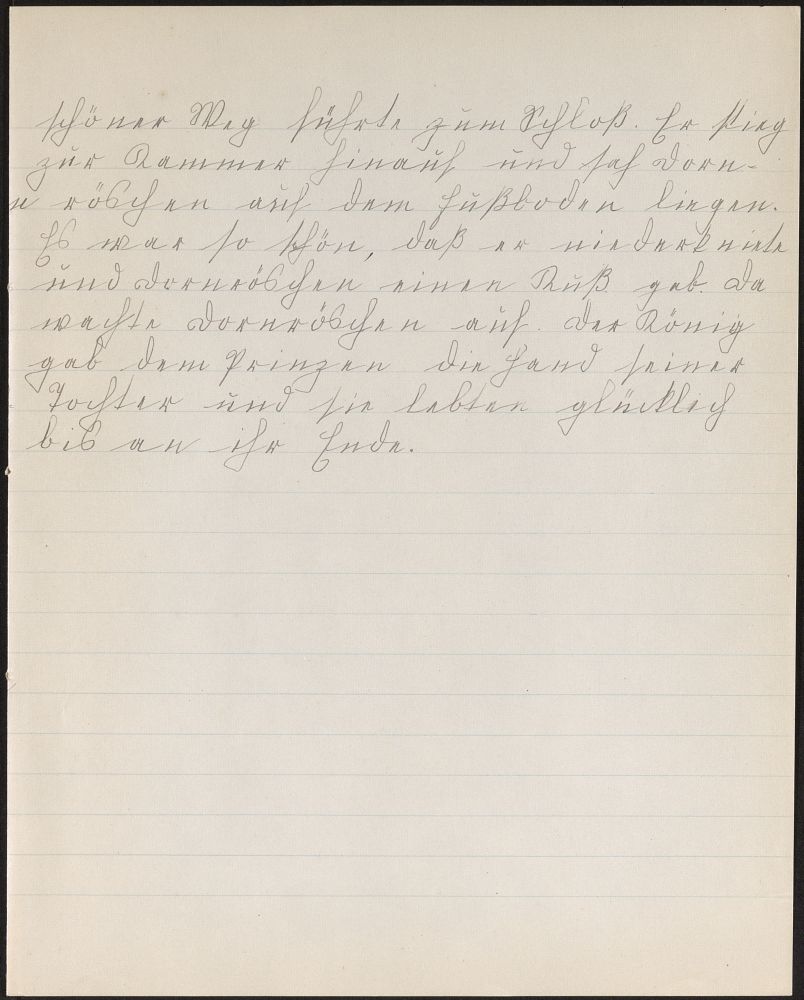 schöner Weg führte zum Schloß. Er stieg
zur Kammer hinauf und sah Dorn-
röschen auf dem Fußboden liegen.
Es war so schön, daß er niederkniete
und Dornröschen einen Kuß gab. Da
wachte Dornröschen auf. Der König
gab dem Prinzen die Hand seiner
Tochter und sie lebten glücklich
bis an ihr Ende.